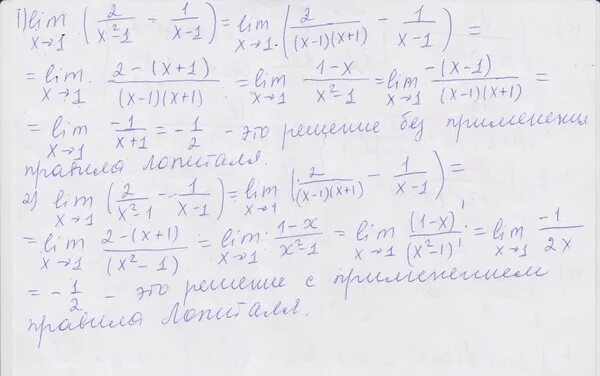 1) lim x→1 (2/(x²-1) - 1/(x-1)) = lim x→1 (2/((x-1)(x+1)) - 1/(x-1)) =
= lim x→1 (2-(x+1))/((x-1)(x+1)) = lim x→1 (1-x)/(x²-1) = lim x→1 (-(x-1))/((x-1)(x+1)) =
= lim x→1 (-1)/(x+1) = -1/2 - это решение без применения
правила Лопиталя.
2) lim x→1 (2/(x²-1) - 1/(x-1)) = lim x→1 (2/((x-1)(x+1)) - 1/(x-1)) =
= lim x→1 (2-(x+1))/((x²-1)) = lim x→1 (1-x)/(x²-1) = lim x→1 (1-x)'/(x²-1)' = lim x→1 (-1)/(2x)
= -1/2 - это решение с применением
правила Лопиталя.